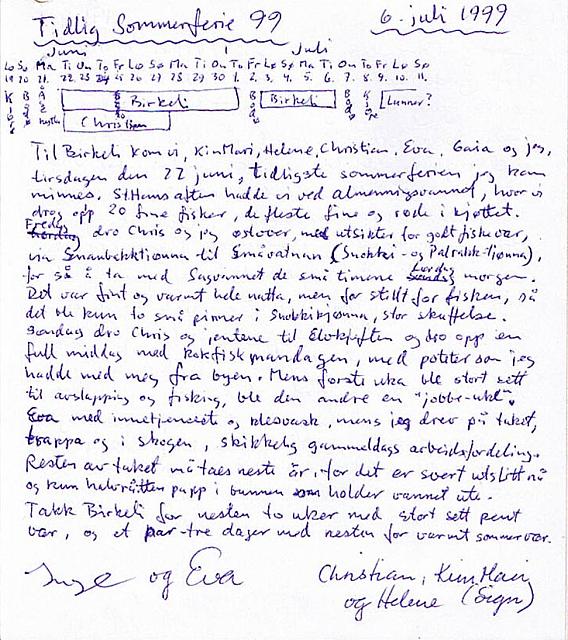 Tidlig Sommerferie 99
6. juli 1999
Juni
Juli
Lø Sø Ma Ti On To Fr Lø Sø Ma Ti On To Fr Lø Sø Ma Ti On To Fr Lø Sø
19 20 21. 22. 23. 24. 25 26 27. 28. 29. 30 1. 2. 3. 4. 5. 6. 7. 8. 9. 10. 11.
Birkeli
Birkeli
Lunner?
Christian
Til Birkeli kom vi, KimMari, Helene, Christian, Eva, Gaia og jeg,
tirsdagen den 22 juni, tidligste sommerferien jeg kan
minnes. St.Hansaften hadde vi ved almenningsvannet, hvor vi
drog opp 20 fine fisker, de fleste fine og røde i kjøttet.
Fredag dro Chris og jeg østover, med utsikter for godt fiskevær,
via til Småvatnan
for så å ta med de små timene Lørdag morgen.
Det var fint og varmt hele natta, men for stillt for fisken, så
det ble kun to små pinner i stor skuffelse.
Søndag dro Chris og jentene til og dro opp en
full middag med kokfisk mandagen, med poteter som jeg
hadde med meg fra byen. Mens første uka ble stort sett
til avslapping og fisking, ble den andre en "jobbe-uke".
Eva med innetjeneste og klesvask, mens jeg drev på taket,
trappa og i skogen, skikkelig gammeldags arbeidsfordeling.
Resten av taket må taes neste år, for det er svert utslitt nå
og kun helråtten papp i bunnen som holder vannet ute.
Takk Birkeli for nesten to uker med stort sett pent
vær, og et par-tre dager med nesten for varmt sommervær.
Inge og Eva
Christian, Kim Mari
og Helene (Sign)